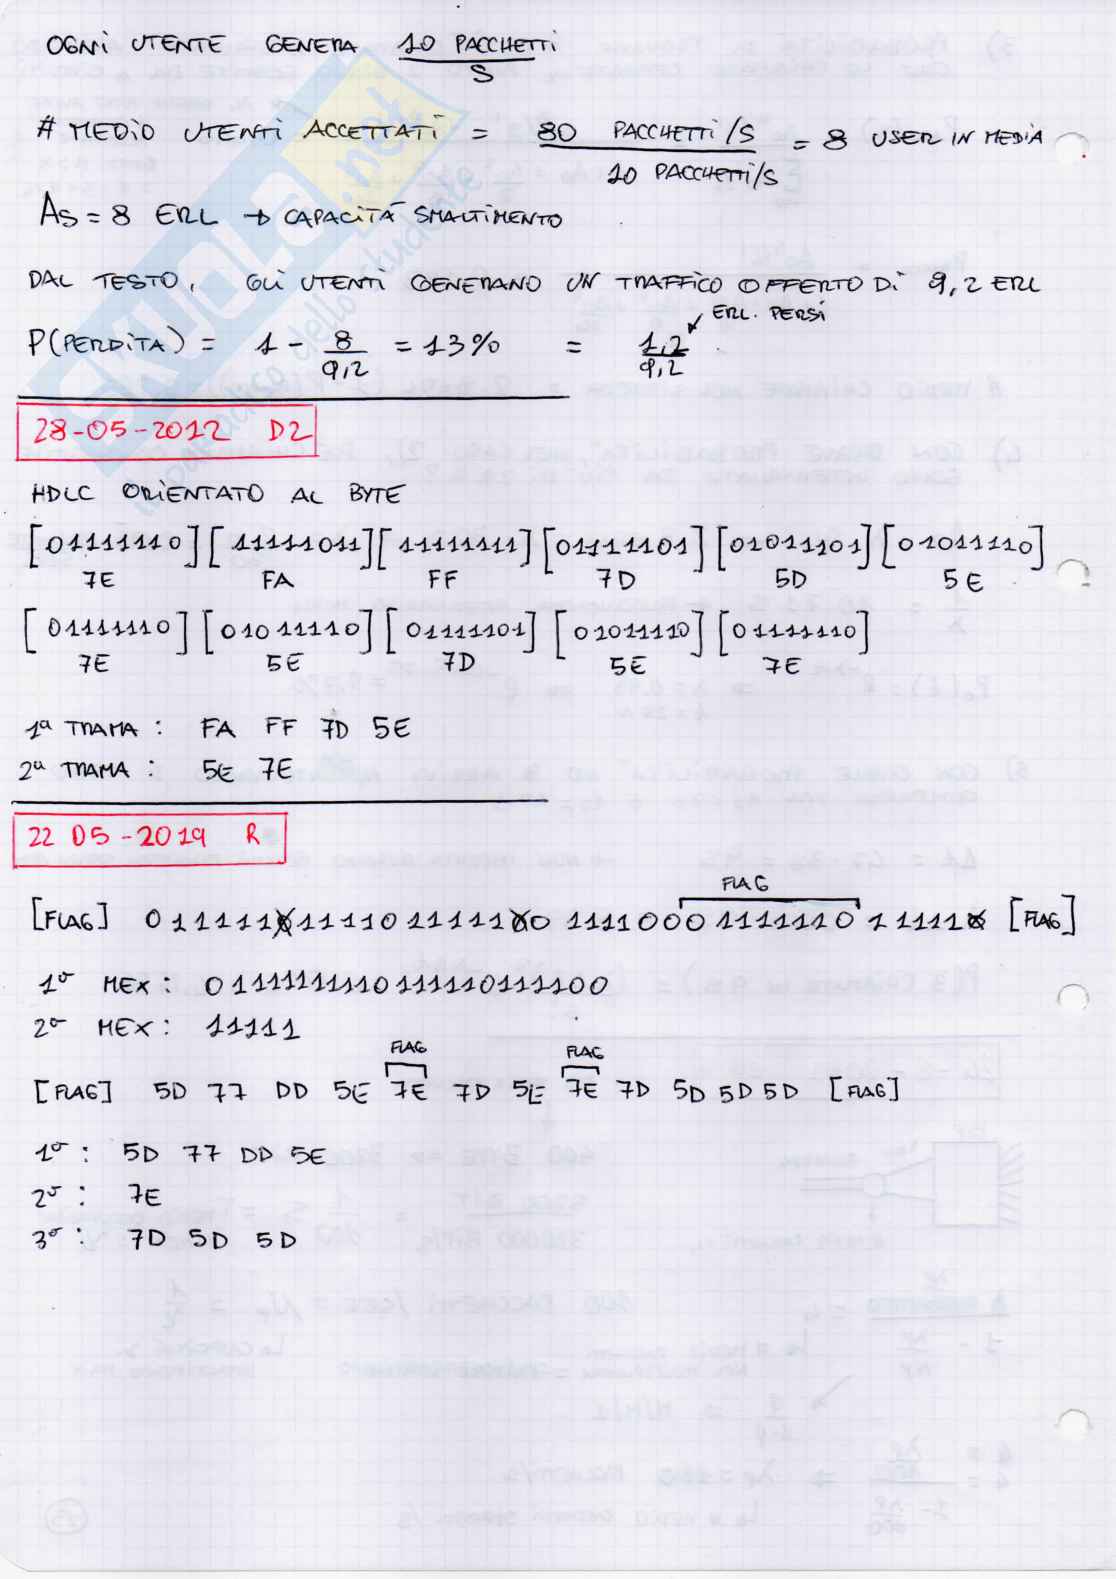 OGNI UTENTE GENERA 10 PACCHETTI
S
# MEDIO UTENTI ACCETTATI = 80 PACCHETTI/S = 8 USER IN MEDIA
10 PACCHETTI/S
AS = 8 ERL → CAPACITÀ SMALTIMENTO
DAL TESTO, GLI UTENTI GENERANO UN TRAFFICO OFFERTO DI 9,2 ERL
ERL. PERSI
P(PERDITA) = 1 - 8 = 13% = 1,2
9,2 9,2
28-05-2012 D2
HDLC ORIENTATO AL BYTE
[01111110] [11111011] [11111111] [01111101] [01011101] [01011110]
7E FA FF 7D 5D 5E
[01111110] [01011110] [01111101] [01011110] [01111110]
7E 5E 7D 5E 7E
1ª TRAMA : FA FF 7D 5E
2ª TRAMA : 5E 7E
22 05-2019 R
FLAG
[FLAG] 0111110111101111100 1111000 1111110 111110 [FLAG]
1º MEX : 01111111110111110111100
2º MEX : 11111
FLAG FLAG
[FLAG] 5D 77 DD 5E 7E 7D 5E 7E 7D 5D 5D 5D [FLAG]
1º : 5D 77 DD 5E
2º : 7E
3º : 7D 5D 5D
SKUOLA.net